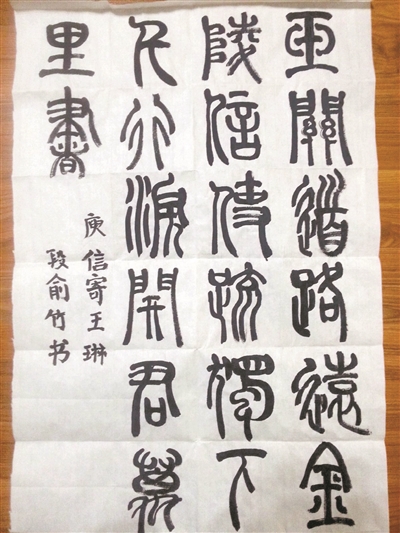 玉關道路遠金
陵信使疏獨下
千行淚開君萬
里書
庾信寄王琳
段俞竹书